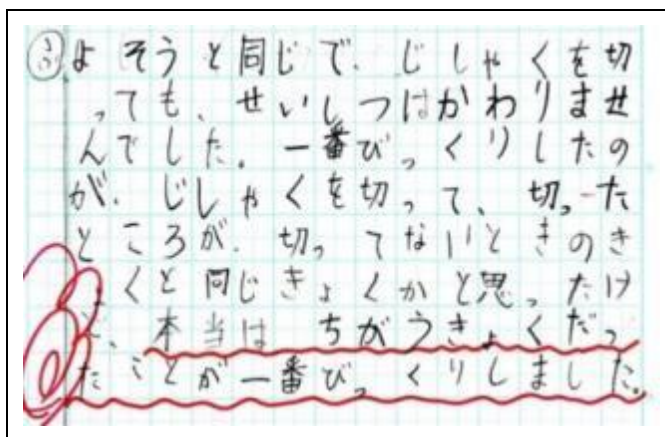 ㋫よそうと同じで、じしゃくを切
っても、せいしつはかわりませ
んでした。一番びっくりしたの
が、じしゃくを切って、切った
ところが、切ってないときのき
ょくと同じきょくかと思ったけ
ど、本当は ちがうきょくだっ
たことが一番びっくりしました。